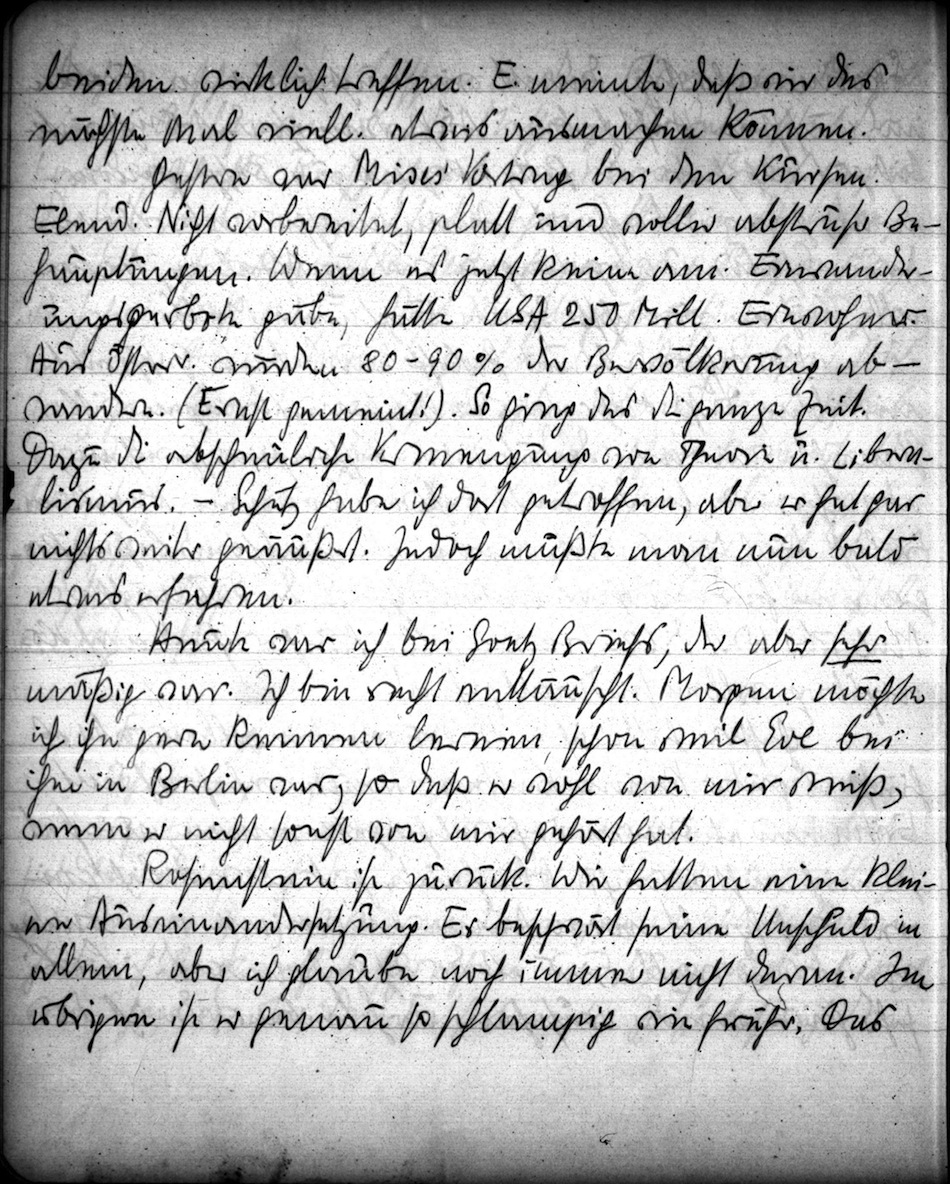 beiden wirklich treffen. E. meinte, daß wir das
nächste Mal viell. etwas ausmachen können.
Gestern war Mises' Vortrag bei den Kursen.
Elend. Nicht vorbereitet, platt und voller abstruser Be-
hauptungen. Wenn es jetzt keine am. Einwander-
ungsverbote gäbe, hätte USA 250 Mill. Einwohner.
Aus Österr. würden 80-90% der Bevölkerung ab-
wandern. (Ernst gemeint!). So ging das die ganze Zeit.
Dazu die abscheuliche Vermengung von Theorie u. Libera-
lismus. – Schütz habe ich dort getroffen, aber er hat gar
nichts weiter geäußert. Jedoch müßte man nun bald
etwas erfahren.
Heute war ich bei Goetz Briefs, der aber sehr
mäßig war. Ich bin recht enttäuscht. Morgen möchte
ich ihn gern kennen lernen, schon weil Eve bei
ihm in Berlin war, so daß er wohl von mir weiß,
wenn er nicht sonst von mir gehört hat.
Rosenstein ist zurück. Wir hatten eine klei-
ne Auseinandersetzung. Er beschwört seine Unschuld in
allem, aber ich glaube noch immer nicht daran. Im
übrigen ist er genau so schlampig wie früher. Das